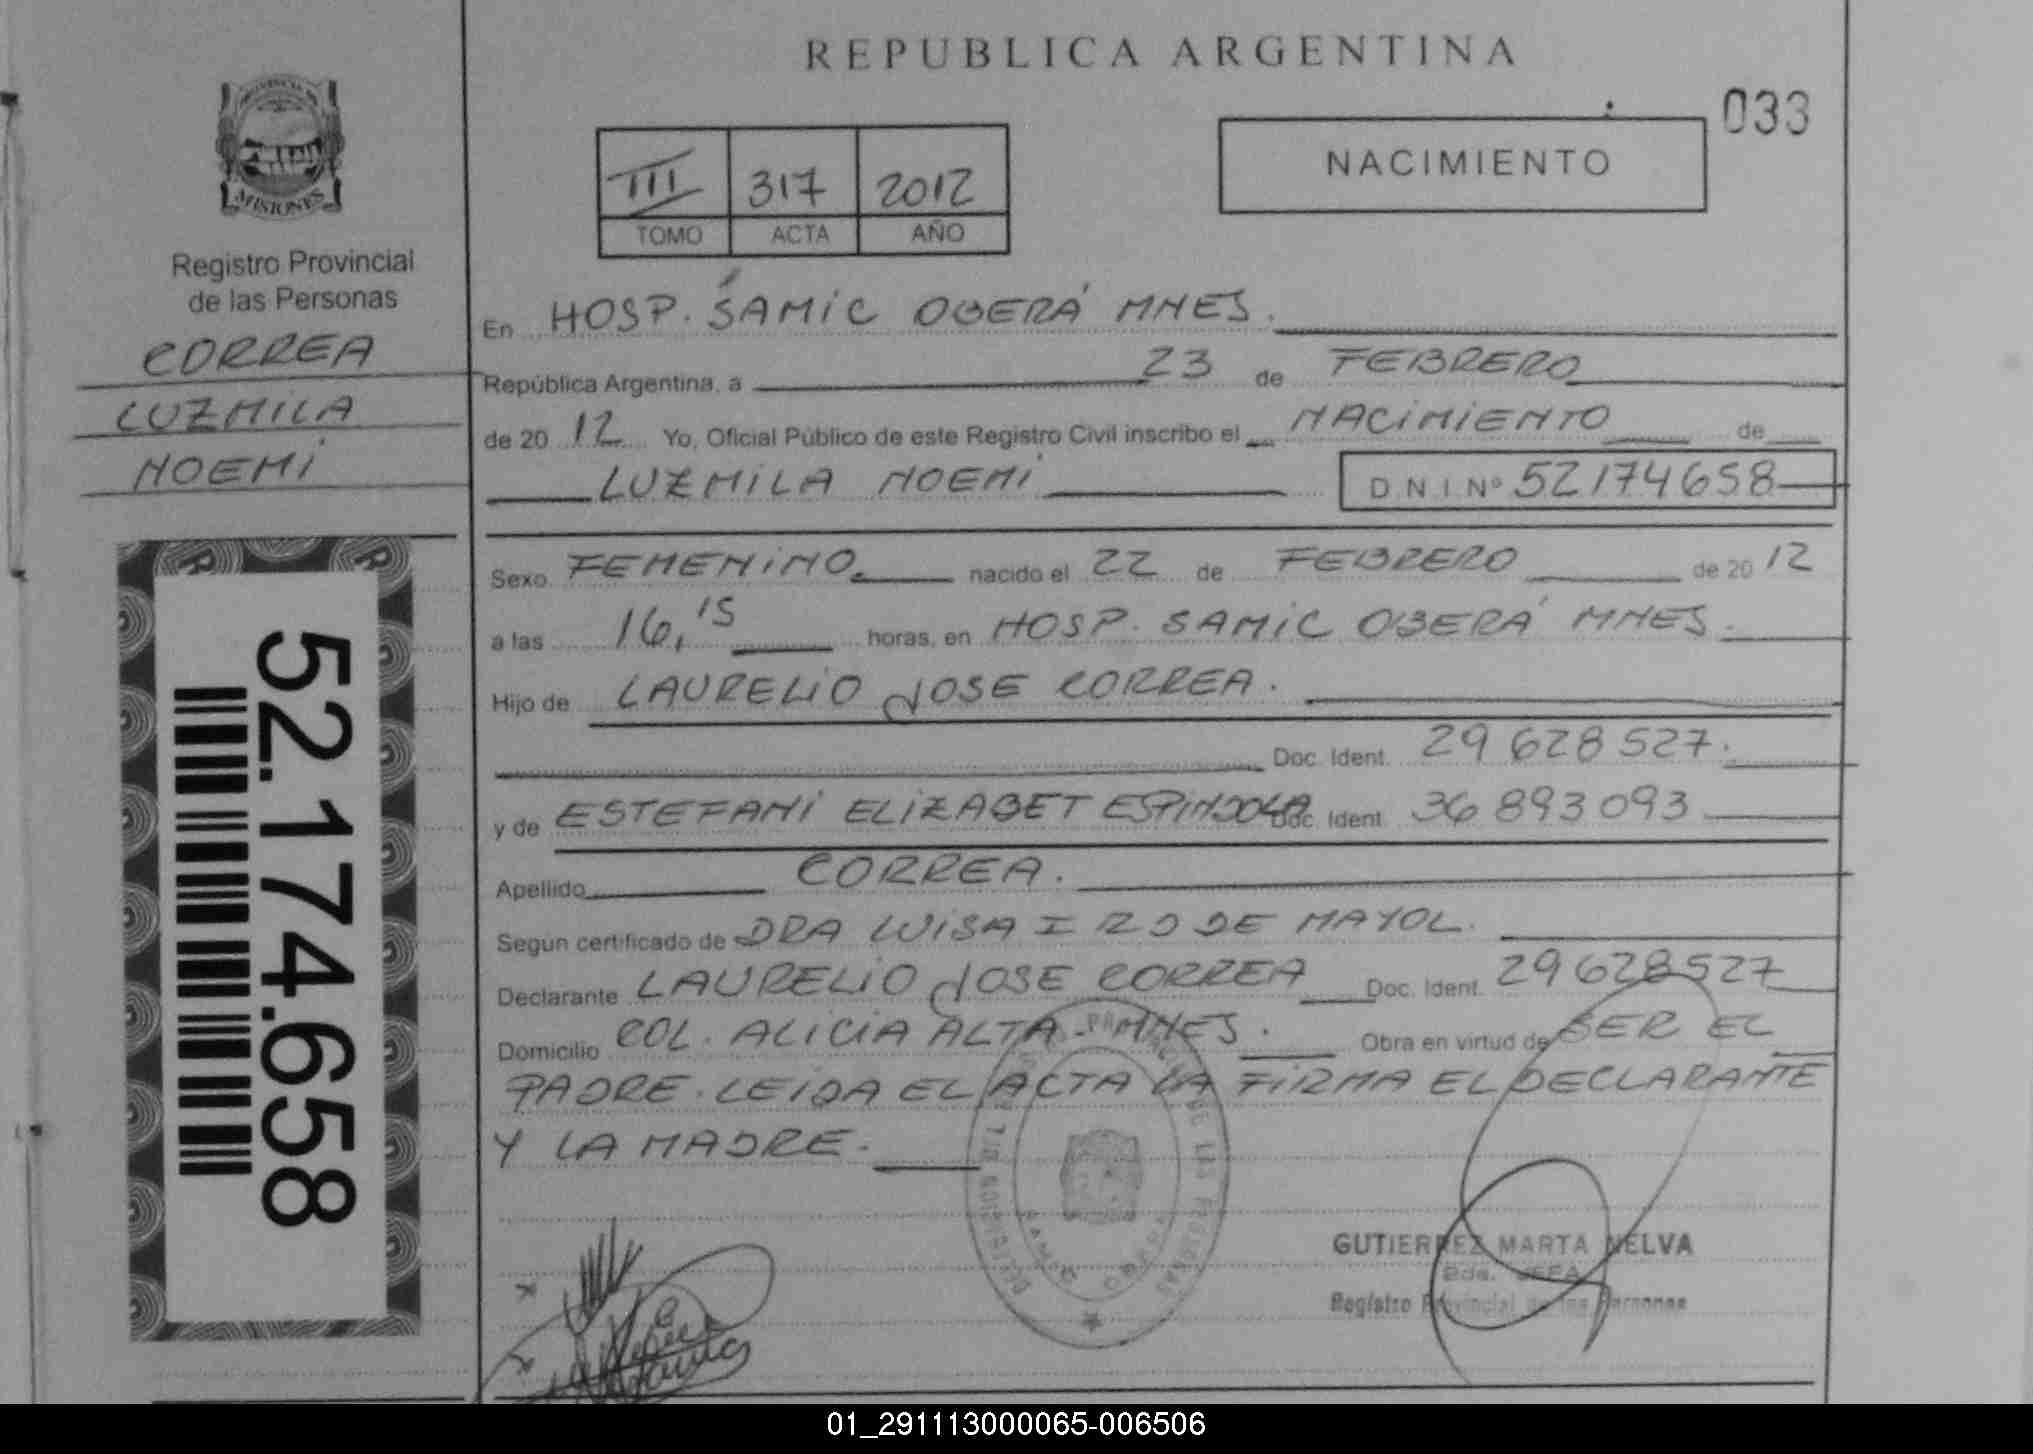 REPUBLICA ARGENTINA
033
NACIMIENTO
III 317 2012
TOMO ACTA AÑO
MISIONES
Registro Provincial
de las Personas
CORREA
LUZMILA
NOEMI
52.174.658
En HOSP. SAMIC OBERÁ MNES.
República Argentina, a 23 de FEBRERO
de 2012 Yo, Oficial Público de este Registro Civil inscribo el NACIMIENTO de
LUZMILA NOEMI D N I Nº 52174658
Sexo FEMENINO. nacido el 22 de FEBRERO de 2012
a las 16,15 horas, en HOSP. SAMIC OBERÁ MNES.
Hijo de LAURELIO JOSE CORREA.
Doc. Ident. 29 628 527.
y de ESTEFANI ELIZABET ESPINDOLA Doc. Ident. 36 893 093
Apellido CORREA.
Según certificado de DRA LUISA I R DE MAYOL.
Declarante LAURELIO JOSE CORREA Doc. Ident. 29 628 527
Domicilio COL. ALICIA ALTA - MNES. Obra en virtud de SER EL
PADRE. LEIDA EL ACTA LA FIRMA EL DECLARANTE
Y LA MADRE.
GUTIERREZ MARTA NELVA
2da. JEFA
Registro Provincial de las Personas
01_291113000065-006506